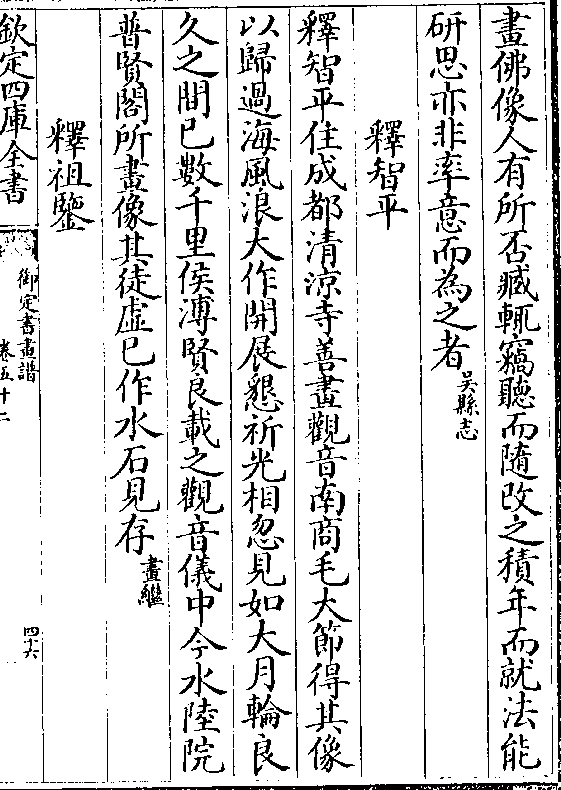 畫佛像人有所否臧輒竊聽而隨改之積年而就法能
研思亦非率意而為之者吳縣志
釋智平
釋智平住成都清涼寺善畫觀音南商毛大節得其像
以歸過海風浪大作開展懇祈光相忽見如大月輪良
久之間已數千里侯溥賢良載之觀音儀中今水陸院
普賢閣所畫像其徒虛已作水石見存畫繼
釋祖鑒
欽定四庫全書
御定書畫譜
卷五十
四十六